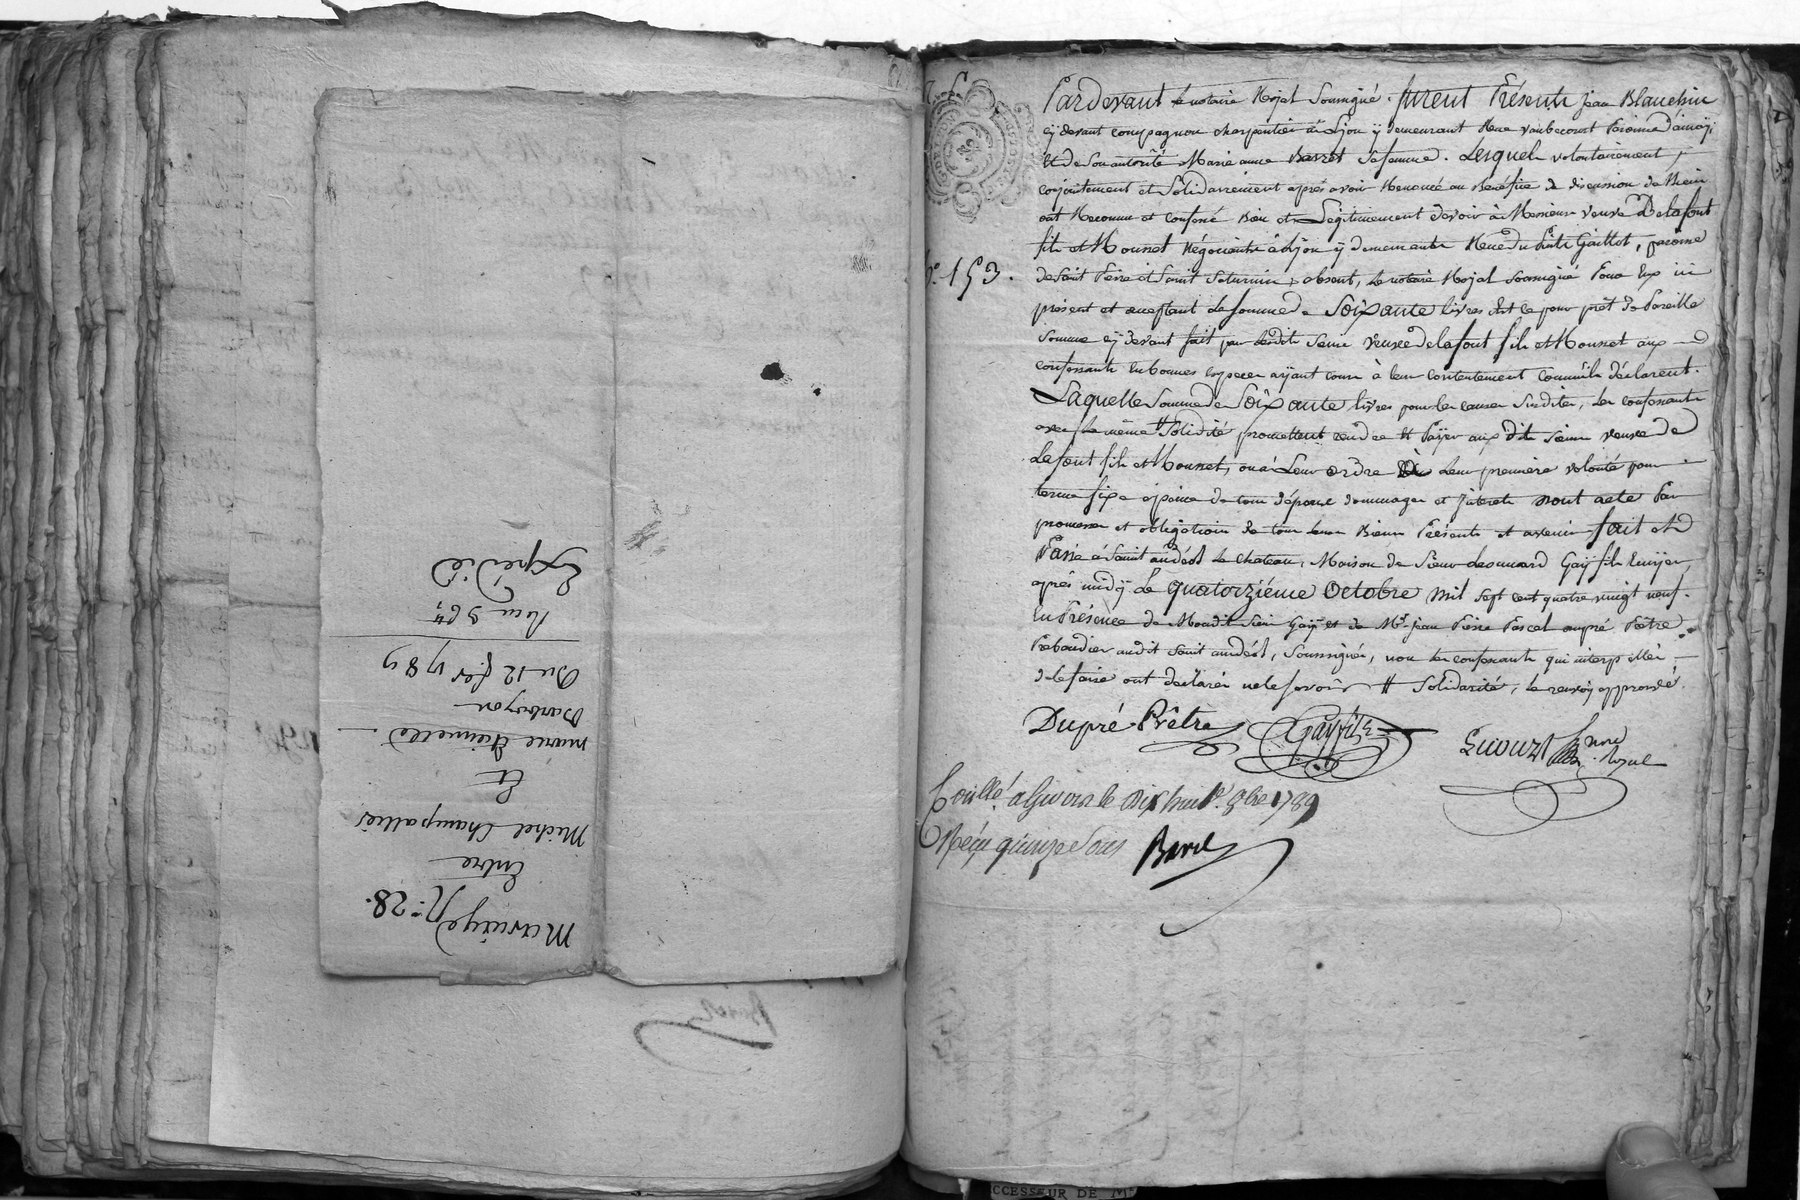 Mariage N.° 28.
Entre
Michel Champallier
Et
marie
Du 12 fev 1789
Expédiés
N.° 153.
Pardevant le notaire Royal Soussigné. furent Présents Jean Blanchin
cÿ devant compagnon charpentier à Lyon ÿ demeurant Rue vaubecourt Paroisse d'ainaÿ,
Et de Son autorité Marie anne Barret Sa femme. Lesquels volontairement,
conjointement et Solidairement après avoir Renoncé au Bénéfice de discussion de Biens
ont Reconnu et confessé Bien et Légitimement devoir à Messieurs veuve Delafont
fils et Monnet Négociants à Lyon ÿ demeurants Rue du Puits Gaillot, paroisse
de Saint Pierre et Saint Saturnin, absents, Le notaire Royal Soussigné Pour Eux ici
présent et acceptant La Somme de Soixante livres Et ce pour prêt de Pareille
Somme cÿ devant fait par lesdits Sieurs veuve delafont fils et Monnet aux
confessants En bonnes Especes aÿant cours à leur contentement comm'ils déclarent.
Laquelle Somme de Soixante livres pour les causes Susdites, Les confessants
avec la même # Solidité promettent rendre Et Païer aux dits Sieurs veuve de
Lafont fils et Monnet, ou à Leur ordre à Leur première volonté pour
terme fixe à peine de tous dépens dommages et Interets dont acte Par
promesses et obligations de tous leurs Biens Présents et avenir fait et
Passé à Saint andéol Le Chateau, Maison de Sieur Gaÿ fils
après midÿ Le quatorziéme Octobre mil Sept cent quatre vingt neuf.
En Présence de Mondit Sieur Gaÿ et de M.r Jean Pierre Pascal Dupré Prêtre
Prebandier audit Saint andéol, Soussignés, non les confessants qui interpellés
de le faire ont déclaré ne le savoir # Solidarité, le renvoÿ approuvé.
Dupré Prêtre Gaÿ fils nore Royal
Conllé. à Givors le Dix huit 8bre 1789
Reçu quinze Sous